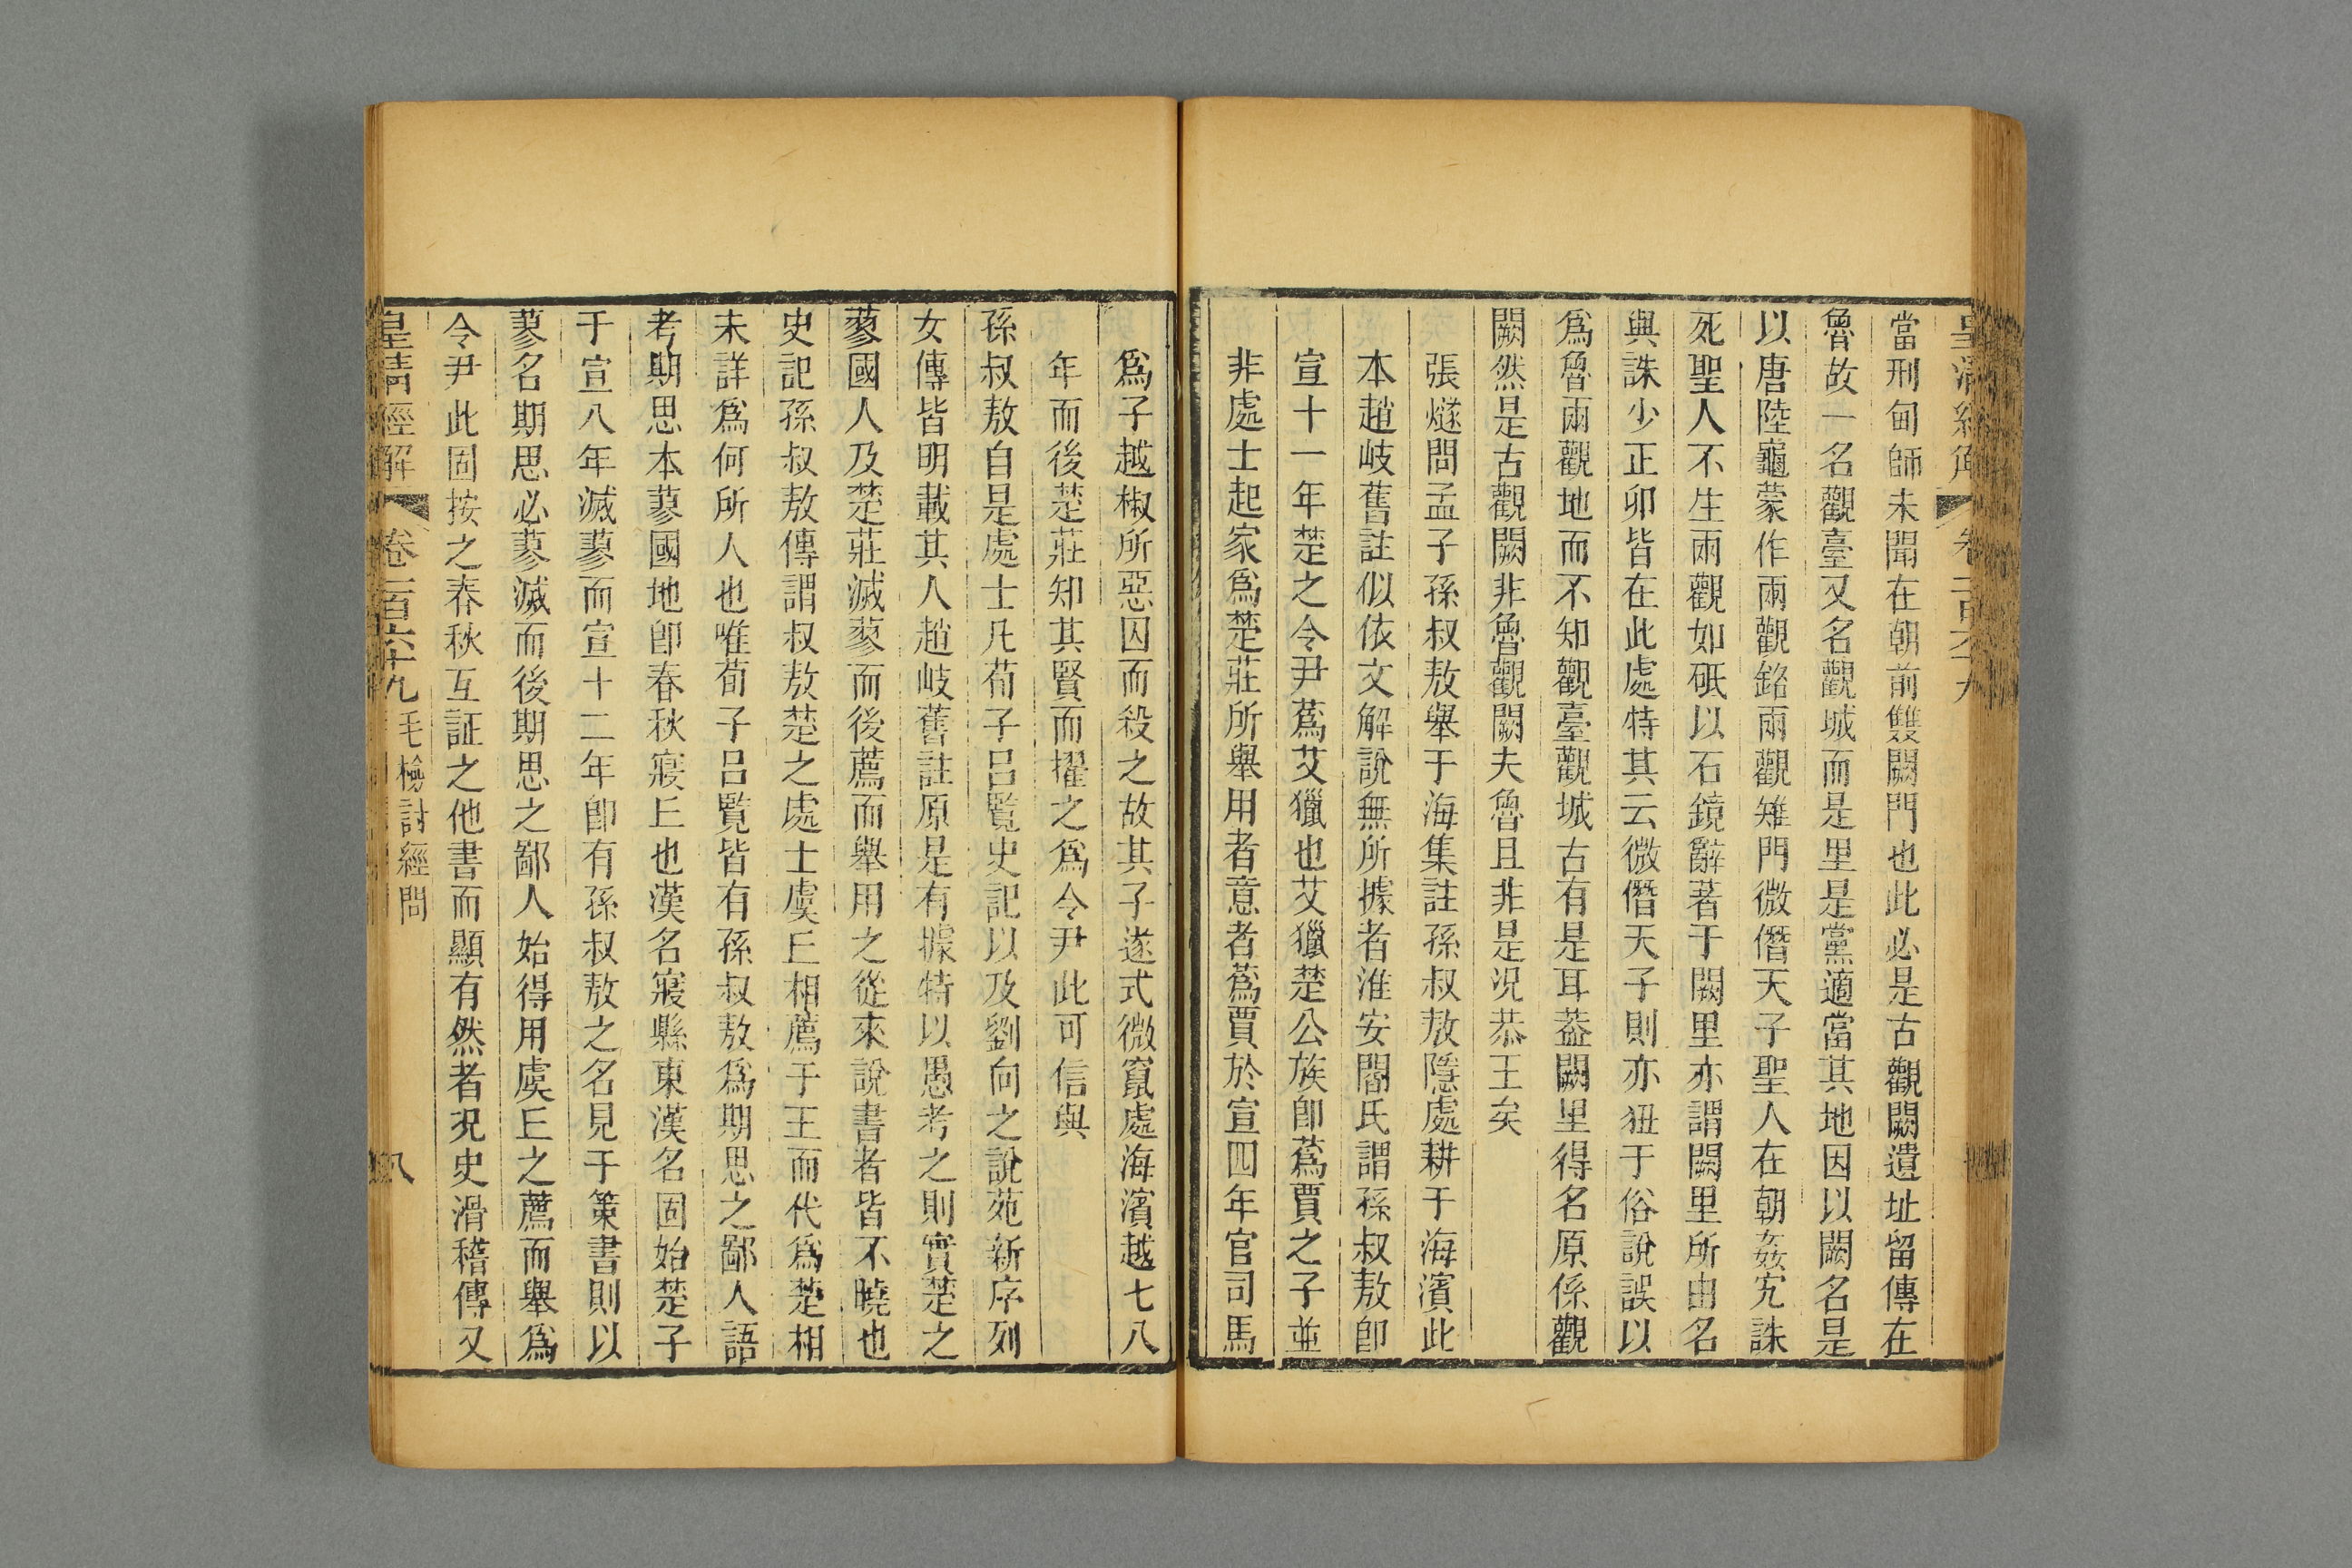 當刑甸師未聞在朝前雙闕門也此必是古觀闕遺址留傳在
魯故一名觀臺又名觀城而是里是黨適當其地因以闕名是
以唐陸龜蒙作兩觀銘兩觀雉門微僭天子聖人在朝姦宄誅
死聖人不生兩觀如砥以石鏡辭著于闕里亦謂闕里所由名
與誅少正卯皆在此處特其云微僭天子則亦狃于俗說誤以
爲魯兩觀地而不知觀臺觀城古有是耳葢闕里得名原係觀
闕然是古觀闕非魯觀闕夫魯且非是况恭王矣
張燧問孟子孫叔敖舉于海集註孫叔敖隱處耕于海濱此
本趙岐舊註似依文解說無所據者淮安閻氏謂孫叔敖卽
宣十一年楚之令尹蒍艾獵也艾獵楚公族卽蒍賈之子並
非處士起家爲楚莊所舉用者意者蒍賈於宣四年官司馬
爲子越椒所惡囚而殺之故其子遂式微竄處海濱越七八
年而後楚莊知其賢而擢之爲令尹此可信與
孫叔敖自是處士凡荀子呂覽史記以及劉向之說苑新序列
女傳皆明載其人趙岐舊註原是有據特以愚考之則實楚之
蓼國人及楚莊滅蓼而後薦而舉用之從來說書者皆不曉也
史記孫叔敖傳謂叔敖楚之處士虞丘相薦于王而代爲楚相
未詳爲何所人也唯荀子呂覽皆有孫叔敖爲期思之鄙人語
考期思本蓼國地卽春秋寢丘也漢名寢縣東漢名固始楚子
于宣八年滅蓼而宣十二年卽有孫叔敖之名見于策書則以
蓼名期思必蓼滅而後期思之鄙人始得用虞丘之薦而舉爲
令尹此固按之春秋互証之他書而顯有然者況史滑稽傳又
皇清經解 卷一百六十九 毛檢討經問 八